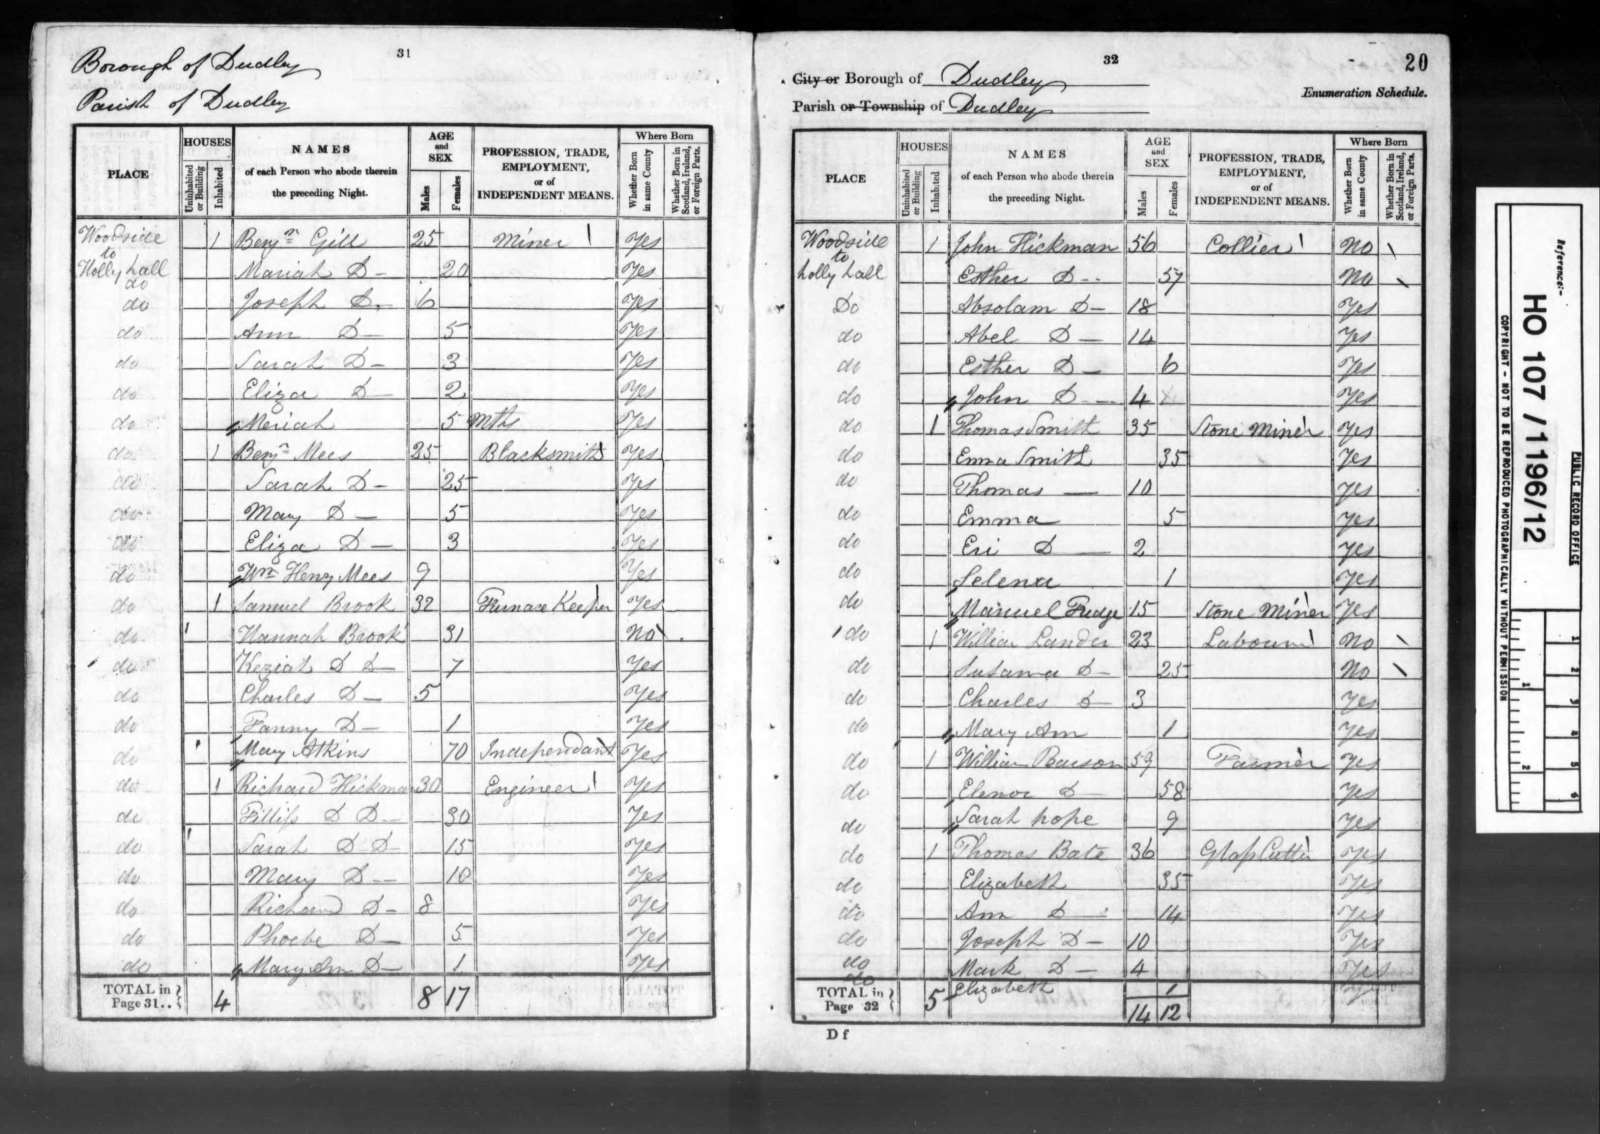 31
Borough of Dudley
Parish of Dudley
PLACE
HOUSES
Uninhabited or Building
Inhabited
NAMES
of each Person who abode therein
the preceding Night.
AGE
and
SEX
Males
Females
PROFESSION, TRADE,
EMPLOYMENT,
or of
INDEPENDENT MEANS.
Where Born
Whether Born in same County
Whether Born in Scotland, Ireland, or Foreign Parts.
Woodside 1 Benjn Gill 25 Miner Yes
to
Holly hall Mariah D 20 Yes
do
do Joseph D 6 Yes
do Ann D 5 Yes
do Sarah D 3 Yes
do Eliza D 2 Yes
do Meriah 5 Mths Yes
do 1 Benjn Mees 25 Blacksmith Yes
do Sarah D 25 Yes
do Mary D 5 Yes
do Eliza D 3 Yes
do Wm Henry Mees 9 Yes
do 1 Samuel Brook 32 Furnace Keeper Yes
do Hannah Brook 31 No
do Keziah D D 7 Yes
do Charles D 5 Yes
do Fanny D 1 Yes
do Mary Atkins 70 Independant Yes
do 1 Richard Hickman 30 Engineer Yes
do Fillis D D 30 Yes
do Sarah D D 15 Yes
do Mary D 10 Yes
do Richard D 8 Yes
do Phoebe D 5 Yes
do Mary Ann D 1 Yes
TOTAL in Page 31.. 4 8 17
32
20
City or Borough of Dudley
Enumeration Schedule.
Parish or Township of Dudley
PLACE
HOUSES
Uninhabited or Building
Inhabited
NAMES
of each Person who abode therein
the preceding Night.
AGE
and
SEX
Males
Females
PROFESSION, TRADE,
EMPLOYMENT,
or of
INDEPENDENT MEANS.
Where Born
Whether Born in same County
Whether Born in Scotland, Ireland, or Foreign Parts.
Woodside 1 John Hickman 56 Collier No
to
holly hall Esther D 57 No
Do Absolam D 18 Yes
do Abel D 14 Yes
do Esther D 6 Yes
do John D 4 Yes
do 1 Thomas Smith 35 Stone Miner Yes
do Emma Smith 35 Yes
do Thomas 10 Yes
do Emma 5 Yes
do Eri D 2 Yes
do Selena 1 Yes
do Manuel Fudge 15 Stone Miner Yes
do 1 William Lander 23 Labourer No
do Susanna D 25 No
do Charles D 3 Yes
do Mary Ann 1 Yes
do 1 William Pearson 59 Farmer Yes
do Elenor D 58 Yes
do Sarah hope 9 Yes
do 1 Thomas Bate 36 Glass Cutter Yes
do Elizabeth 35 Yes
do Ann D 14 Yes
do Joseph D 10 Yes
do Mark D 4 Yes
do Elizabeth 1 Yes
TOTAL in Page 32 5 14 12
D f
Reference:-
HO 107 / 1196/12
PUBLIC RECORD OFFICE
COPYRIGHT - NOT TO BE REPRODUCED PHOTOGRAPHICALLY WITHOUT PERMISSION
1
2
3
4
5
6
1
2